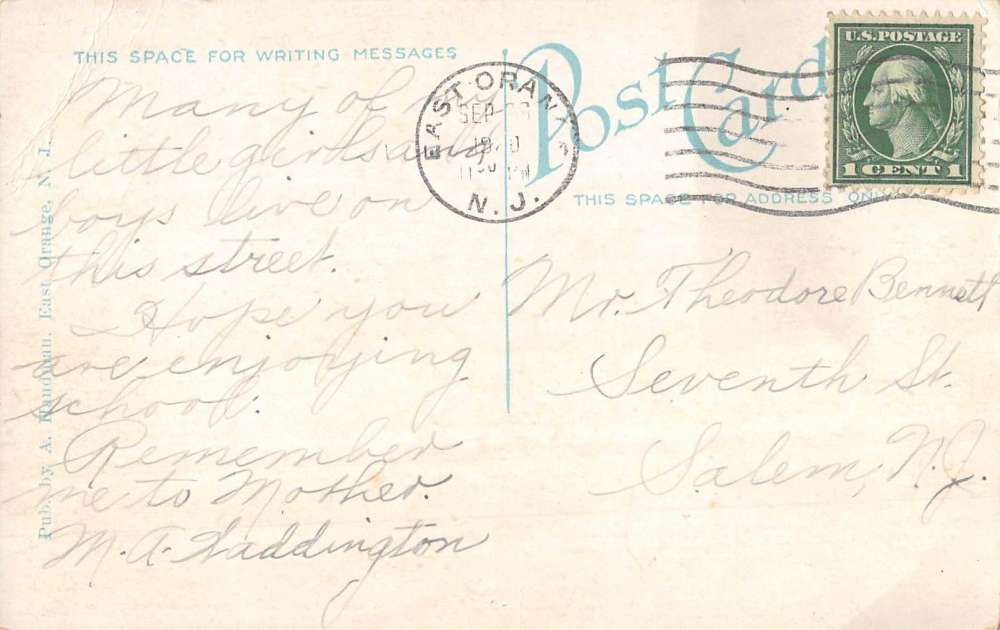 THIS SPACE FOR WRITING MESSAGES
Many of my
little girls and
boys live on
this street.
Hope you
are enjoying
school.
Remember
me to Mother.
M. A. Waddington
Pub. by A. Handman. East Orange, N. J.
EAST ORANGE
SEP
11 30
N. J.
Post Card
THIS SPACE FOR ADDRESS ONLY
U.S. POSTAGE
1 CENT 1
Mr. Theodore Bennett
Seventh St.
Salem, N.J.